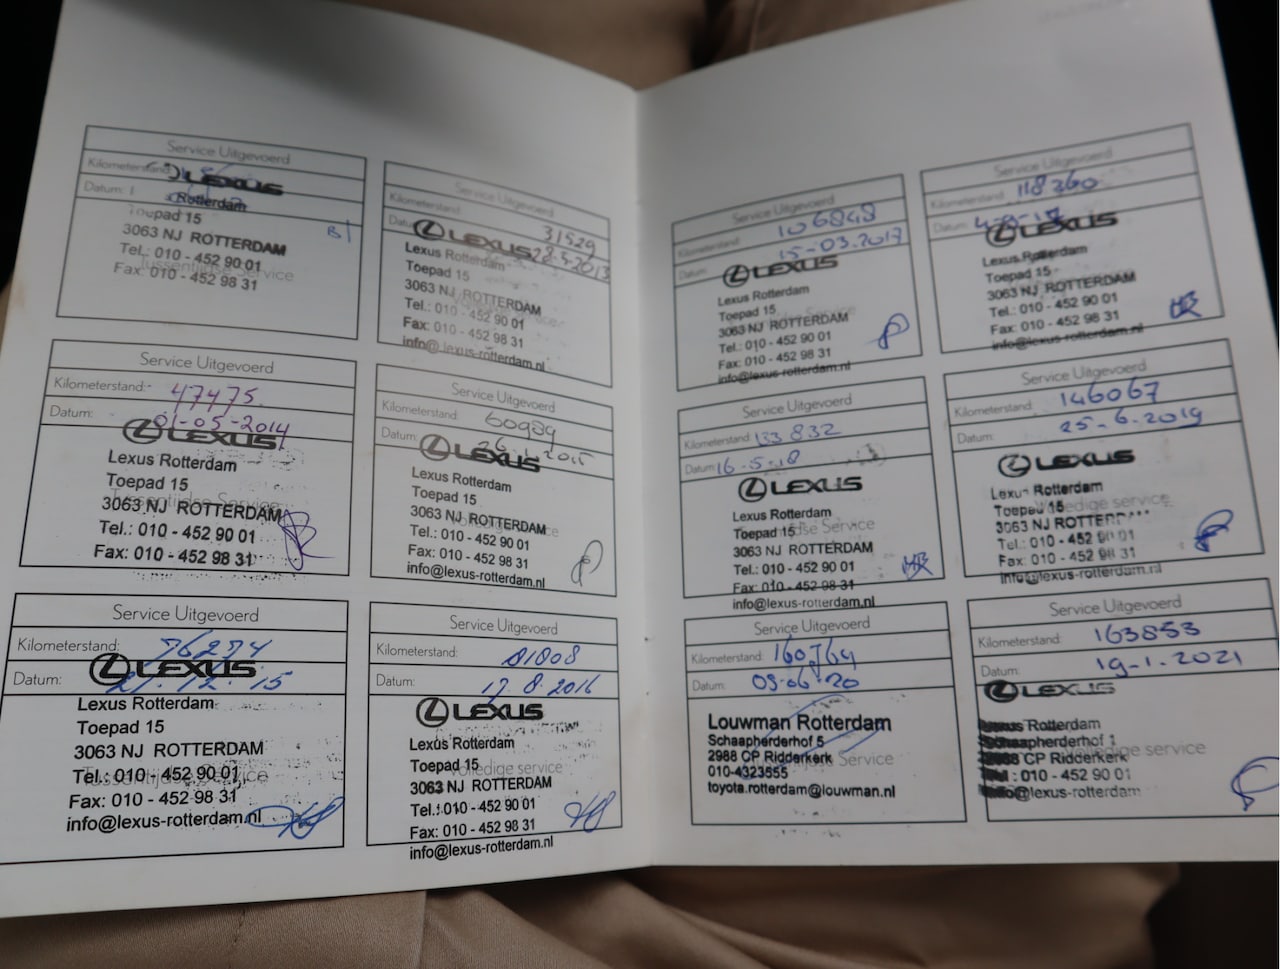 Service Uitgevoerd
Kilometerstand:
LEXUS
Datum:
Rotterdam
Toepad 15
3063 NJ ROTTERDAM
Tel.: 010 - 452 90 01
Tussentijdse Service
Fax: 010 - 452 98 31
Service Uitgevoerd
Kilometerstand: 31529
Datum: 28-5-2013
LEXUS
Lexus Rotterdam
Toepad 15
3063 NJ ROTTERDAM
Tel.: 010 - 452 90 01
Fax: 010 - 452 98 31
info@lexus-rotterdam.nl
Service Uitgevoerd
Kilometerstand: 47475
Datum: 01-05-2014
LEXUS
Lexus Rotterdam
Toepad 15
Tussentijdse Service
3063 NJ ROTTERDAM
Tel.: 010 - 452 90 01
Fax: 010 - 452 98 31
Service Uitgevoerd
Kilometerstand: 60989
Datum:
LEXUS
Lexus Rotterdam
Toepad 15
3063 NJ ROTTERDAM
Tel.: 010 - 452 90 01
Fax: 010 - 452 98 31
info@lexus-rotterdam.nl
Service Uitgevoerd
Kilometerstand: 76274
Datum: 21-12-15
LEXUS
Lexus Rotterdam
Toepad 15
3063 NJ ROTTERDAM
Tel.: 010 - 452 90 01
Tussentijdse Service
Fax: 010 - 452 98 31
info@lexus-rotterdam.nl
Service Uitgevoerd
Kilometerstand: 91808
Datum: 17.8.2016
LEXUS
Lexus Rotterdam
Toepad 15
Volledige service
3063 NJ ROTTERDAM
Tel.: 010 - 452 90 01
Fax: 010 - 452 98 31
info@lexus-rotterdam.nl
Service Uitgevoerd
Kilometerstand: 106848
Datum: 15-03.2017
LEXUS
Lexus Rotterdam
Toepad 15
3063 NJ ROTTERDAM
Tel.: 010 - 452 90 01
Fax: 010 - 452 98 31
info@lexus-rotterdam.nl
Service Uitgevoerd
Kilometerstand: 118260
Datum:
LEXUS
Lexus Rotterdam
Toepad 15
3063 NJ ROTTERDAM
Tel.: 010 - 452 90 01
Fax: 010 - 452 98 31
info@lexus-rotterdam.nl
Service Uitgevoerd
Kilometerstand: 133832
Datum: 16-5-18
LEXUS
Lexus Rotterdam
Toepad 15
Tussentijdse Service
3063 NJ ROTTERDAM
Tel.: 010 - 452 90 01
Fax: 010 - 452 98 31
info@lexus-rotterdam.nl
Service Uitgevoerd
Kilometerstand: 146067
Datum: 25-6-2019
LEXUS
Lexus Rotterdam
Toepad 15
Volledige service
3063 NJ ROTTERDAM
Tel.: 010 - 452 90 01
Fax: 010 - 452 98 31
info@lexus-rotterdam.nl
Service Uitgevoerd
Kilometerstand: 160764
Datum: 09-06-20
Louwman Rotterdam
Schaapherderhof 5
2988 CP Ridderkerk
Tussentijdse Service
010-4323555
toyota.rotterdam@louwman.nl
Service Uitgevoerd
Kilometerstand: 163853
Datum: 19-1-2021
LEXUS
Lexus Rotterdam
Schaapherderhof 1
Volledige service
2988 CP Ridderkerk
Tel.: 010 - 452 90 01
info@lexus-rotterdam.nl